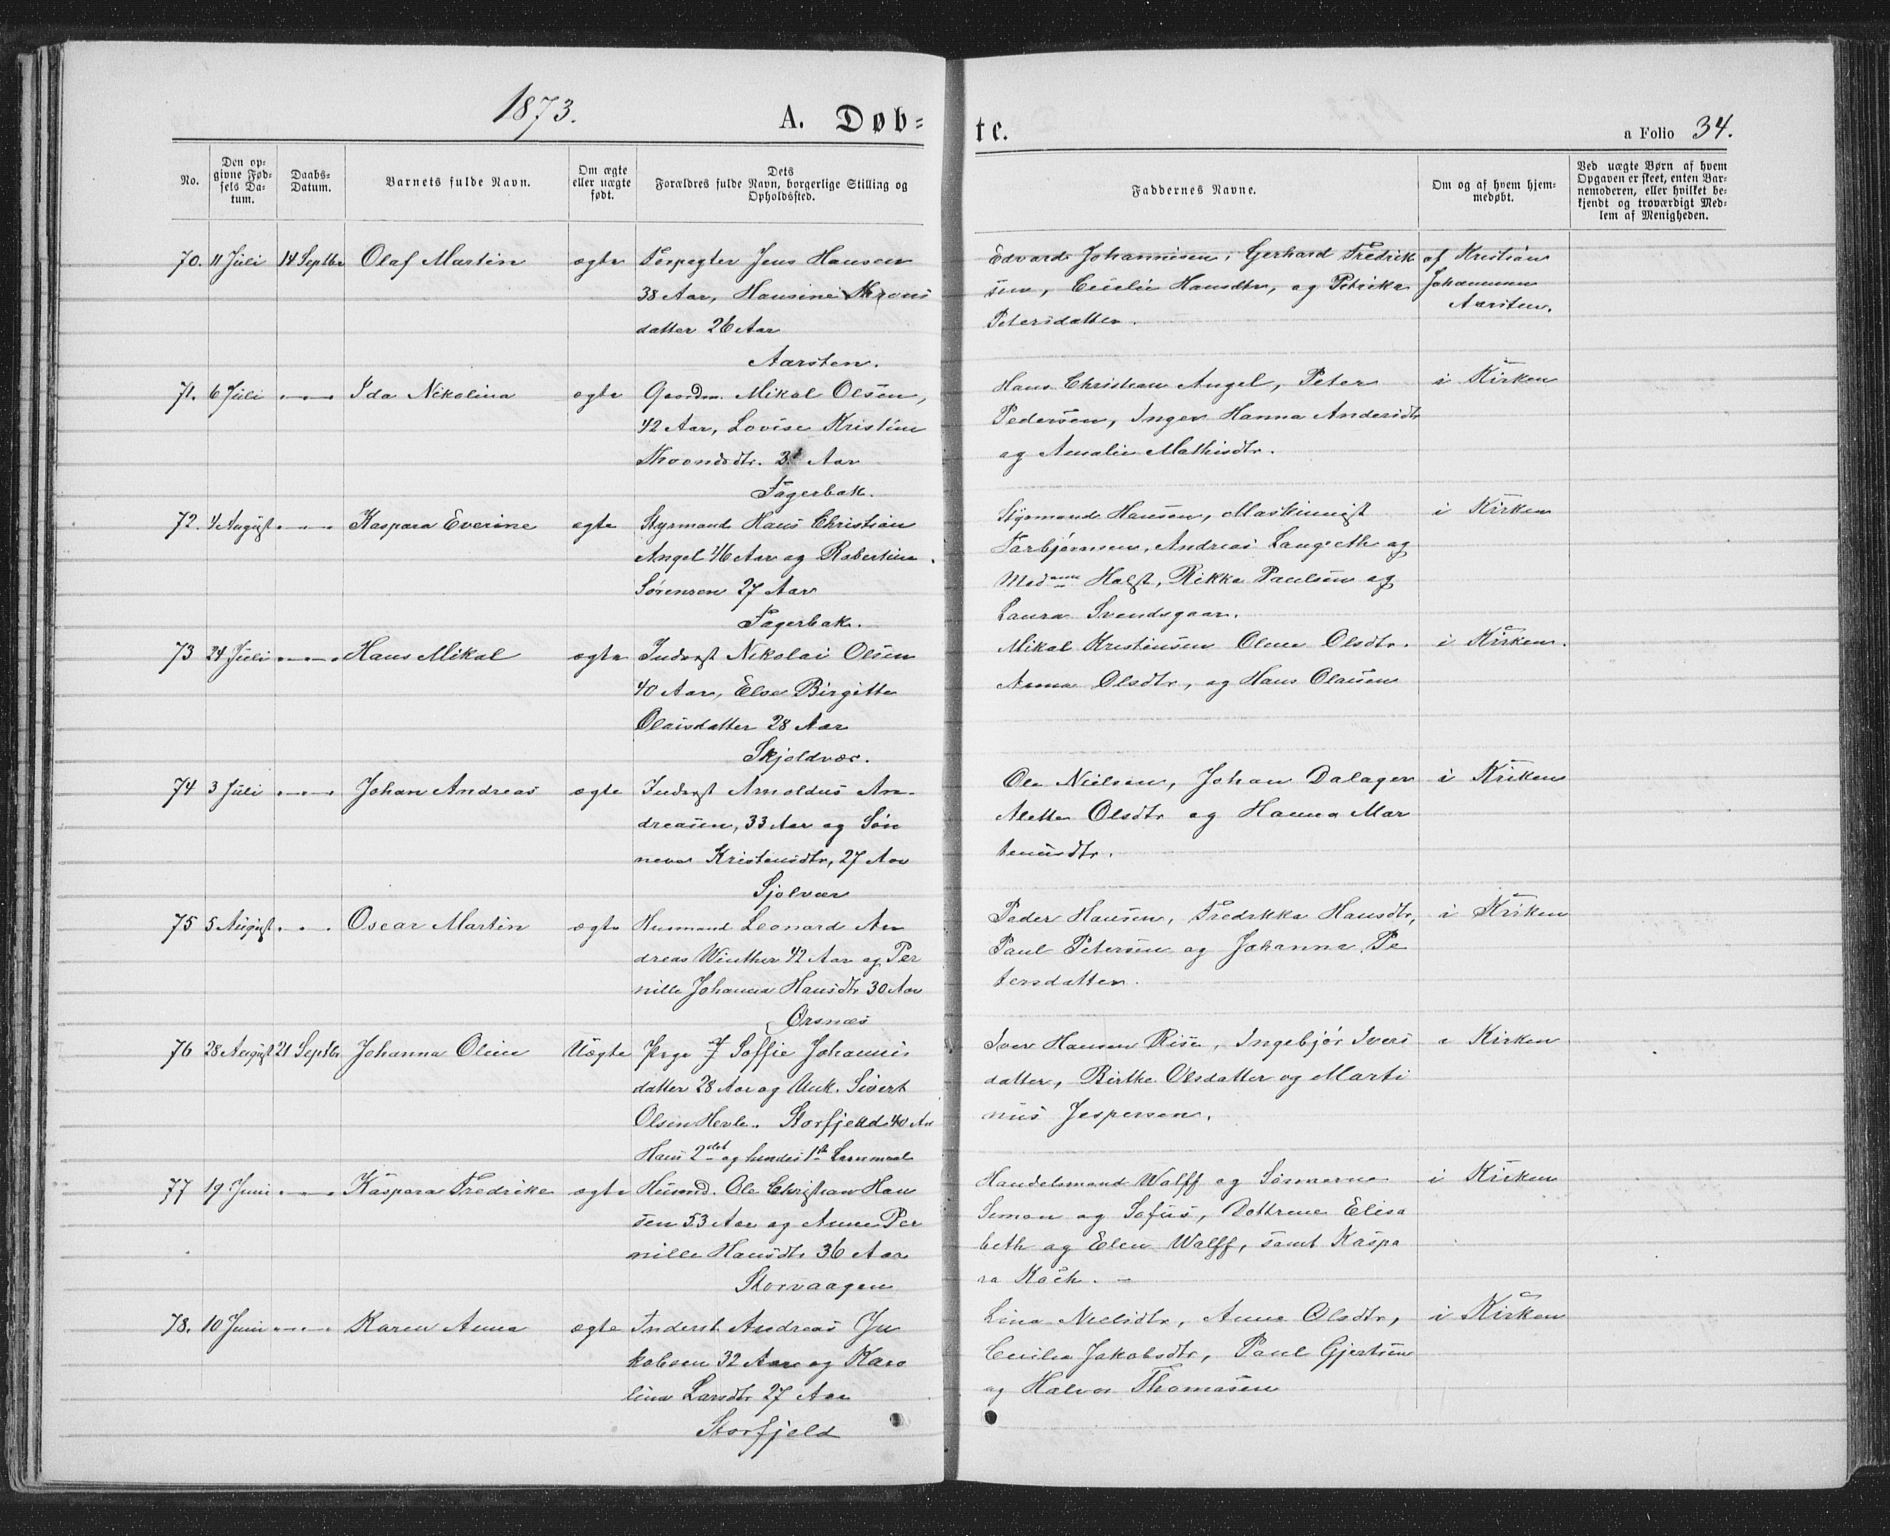 1873.
A. Døb=
te.
a Folio 34.
No.
Den op=
givne Fød=
sels Da=
tum.
Daabs=
Datum.
Barnets fulde Navn.
Om ægte
eller uægte
født.
Dets
Forældres fulde Navn, borgerlige Stilling og
Opholdssted.
Faddernes Navne.
Om og af hvem hjem=
medøbt.
Ved uægte Børn af hvem
Opgaven er skeet, enten Bar=
nemoderen, eller hvilket be=
kjendt og troværdigt Med=
lem af Menigheden.
70. 11 Juli 14 Septbr Olaf Martin ægte Forpagter Jens Hansen
38 Aar, Hansine
datter 26 Aar
Aarsten.
Edvard Johannesen, Gerhard Fredrik
sen, Cecilie Hansdtr, og Petrikke
Petersdatter.
af Kristian
Johannesen
Aarsten.
71. 6 Juli Ida Nikolina ægte Gaardm. Mikal Olsen,
42 Aar, Lovise Kristine
Aar
Fagerbak.
Hans Christian Angel, Peter
Pedersen, Inger Hanna Andersdtr
og Amalie Mathisdtr.
i Kirken
72. 4 August Kaspara Everine ægte Styrmand Hans Christian
Angel 46 Aar og Robertine
Sørensen 27 Aar
Fagerbak.
Styrmand Hansen, Maskinmist
Torbjørnsen, Andreas Langseth og
Madame Holst, Rikke Paulsen og
Laura Svendsgaar.
i Kirken
73 24 Juli Hans Mikal ægte Inderst Nikolai Olsen
40 Aar, Elve Birgitte
Olaisdatter 28 Aar
Skjoldvær.
Mikal Kristensen Olene Olsdtr.
Anna Olsdtr, og Hans Olausen
i Kirken.
74 3 Juli Johan Andreas ægte Inderst Arnoldus An-
dreasen, 33 Aar og Søn
neva Kristensdtr, 27 Aar
Sjolvær
Ole Nielsen, Johan Dalager
Mette Olsdtr og Hanna Mar
tenusdtr.
i Kirken
75 5 August Oscar Martin ægte Husmand Leonard An
dreas Winther 42 Aar og Per
nille Johanna Hansdtr 30 Aar
Ørsnæs
Peder Hansen, Fredrikke Hansdtr,
Paul Petersen og Johanna Pe
tersdatter.
i Kirken
76 28 August 21 Septbr Johanna Oline Uægte Pige Soffie Johannes
datter 28 Aar og Unk. Sivert
Olsen Hevle. Storfjeld 40 Aar
Hans 2det og hendes 1ste Leiermaal
Iver Hansen Rise, Ingebjør Ivers
datter, Birthe Olsdatter og Marti
nus Jespersen.
i Kirken
77 19 Juni Kaspara Fredrike ægte Husmd. Ole Christian Han
sen 53 Aar og Anne Per
nille Hansdtr 36 Aar
Storvaagen
Handelsmand Wolff og Sønnerne
Simon og Sofus, Døttrene Elisa
beth og Elen Wolff, samt Kaspa
ra Koch. –
i Kirken
78. 10 Juni Karen Anna ægte Inderst Andreas Ja
kobsen 32 Aar og Karo
line Larsdtr 27 Aar
Storfjeld
Lina Nielsdtr, Anne Olsdtr,
Cecilie Jakobsdtr, Paul Gjertsen
og Halvor Thomasen
i Kirken